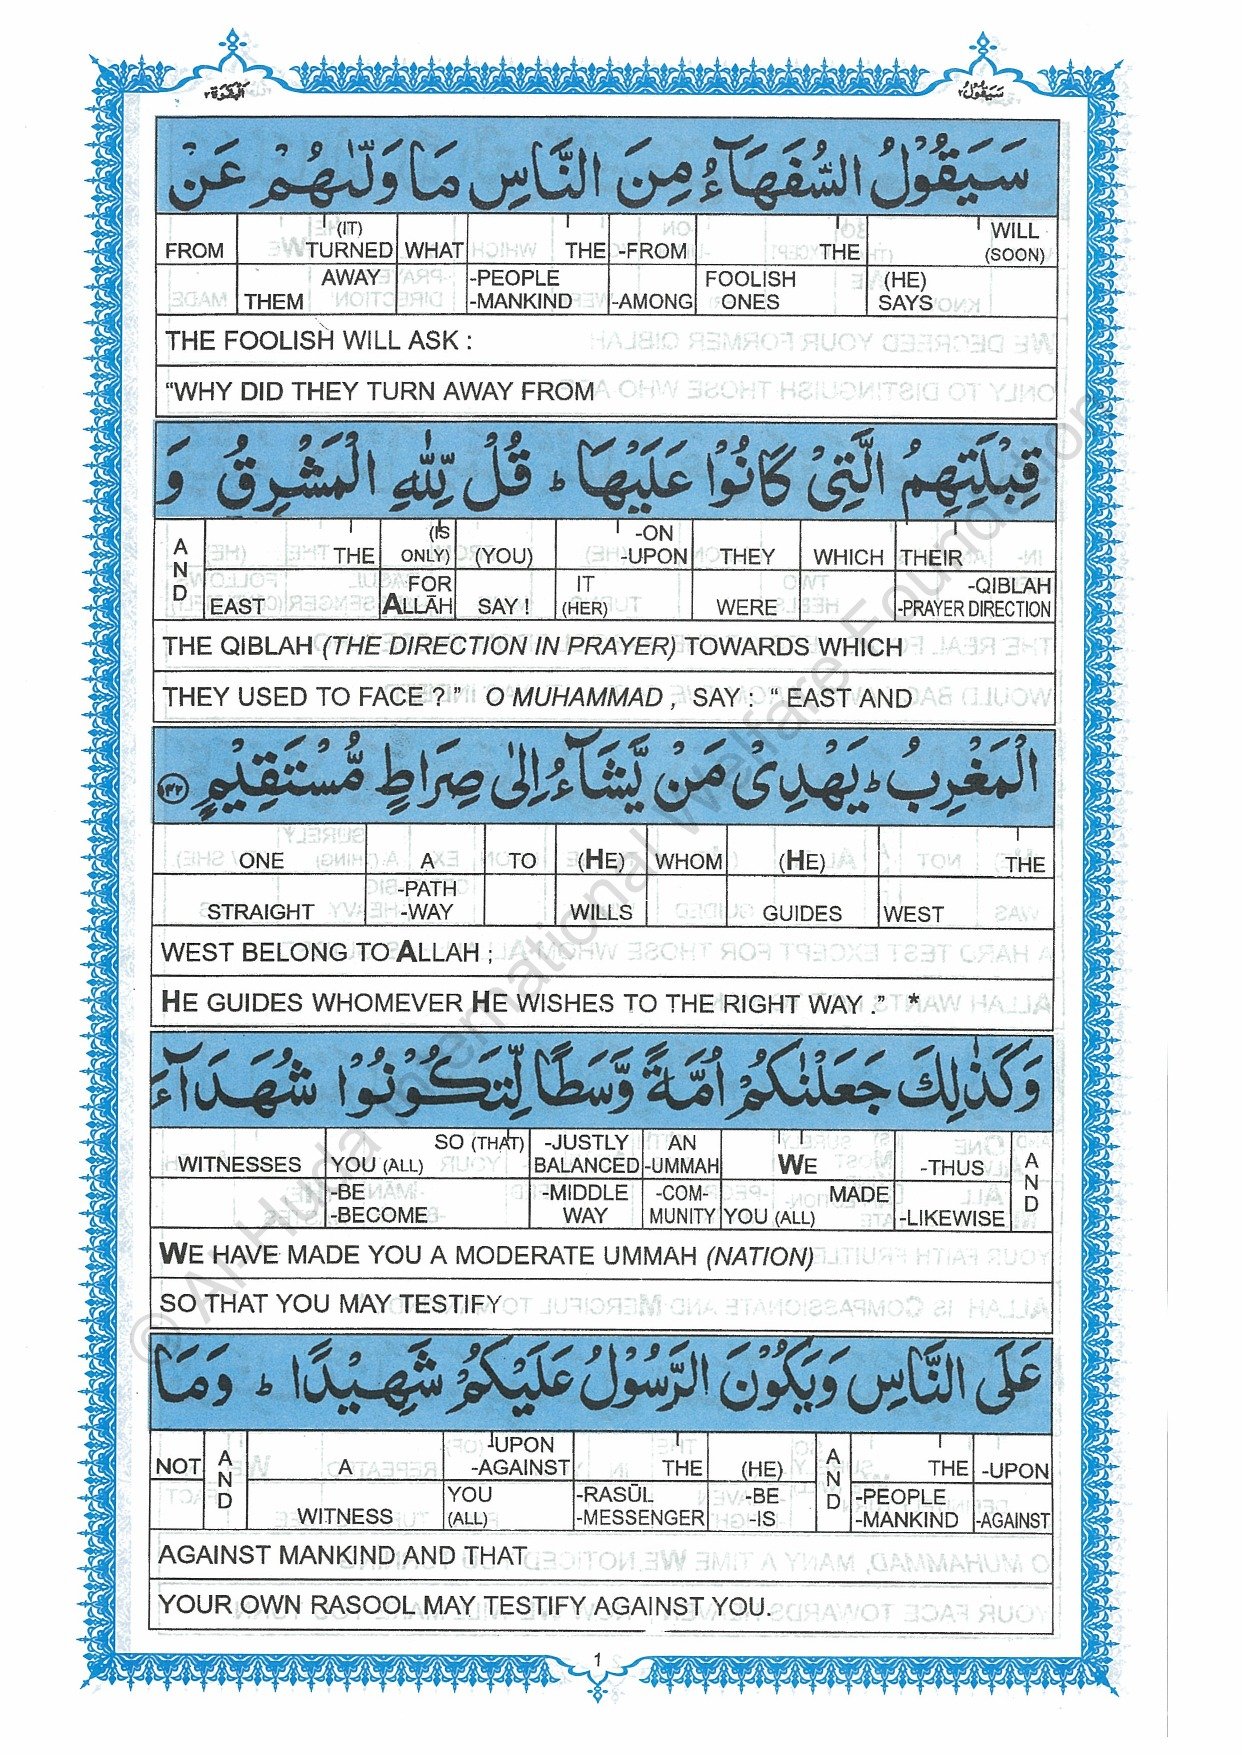 البقرة ٢
سَيَقُوْلُ ٢
سَيَقُوْلُ السُّفَهَآءُ مِنَ النَّاسِ مَا وَلّٰىهُمْ عَنْ
FROM (IT) TURNED WHAT THE -FROM THE WILL (SOON)
THEM AWAY -PEOPLE -MANKIND -AMONG FOOLISH ONES (HE) SAYS
THE FOOLISH WILL ASK :
“WHY DID THEY TURN AWAY FROM
قِبْلَتِهِمُ الَّتِىْ كَانُوْا عَلَيْهَا ؕ قُلْ لِّلّٰهِ الْمَشْرِقُ وَ
AND THE (IS ONLY) (YOU) -ON -UPON THEY WHICH THEIR
EAST FOR ALLĀH SAY ! IT (HER) WERE -QIBLAH -PRAYER DIRECTION
THE QIBLAH (THE DIRECTION IN PRAYER) TOWARDS WHICH
THEY USED TO FACE ? ” O MUHAMMAD , SAY : “ EAST AND
الْمَغْرِبُ ؕ يَهْدِىْ مَنْ يَّشَآءُ اِلٰى صِرَاطٍ مُّسْتَقِيْمٍ ١٤٢
ONE A TO (HE) WHOM (HE) THE
STRAIGHT -PATH -WAY WILLS GUIDES WEST
WEST BELONG TO ALLAH ;
HE GUIDES WHOMEVER HE WISHES TO THE RIGHT WAY . ” *
وَكَذٰلِكَ جَعَلْنٰكُمْ اُمَّةً وَّسَطًا لِّتَكُوْنُوْا شُهَدَآءَ
WITNESSES SO (THAT) YOU (ALL) -JUSTLY BALANCED AN -UMMAH WE -THUS AND
-BE -BECOME -MIDDLE WAY -COM- MUNITY MADE YOU (ALL) -LIKEWISE
WE HAVE MADE YOU A MODERATE UMMAH (NATION)
SO THAT YOU MAY TESTIFY
عَلَى النَّاسِ وَيَكُوْنَ الرَّسُوْلُ عَلَيْكُمْ شَهِيْدًا ؕ وَمَا
NOT AND A -UPON -AGAINST THE (HE) AND THE -UPON
WITNESS YOU (ALL) -RASŪL -MESSENGER -BE -IS -PEOPLE -MANKIND -AGAINST
AGAINST MANKIND AND THAT
YOUR OWN RASOOL MAY TESTIFY AGAINST YOU.
1
© Al-Huda International Welfare Foundation